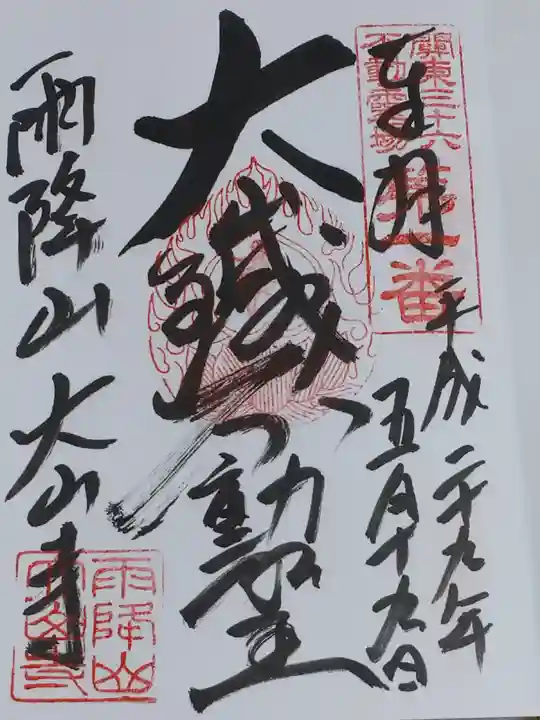 奉拝
關東三十六
不動霊場
第一番
平成二十九年
五月十九日
大鐵不動堂
雨降山大山寺
雨降山
大山寺